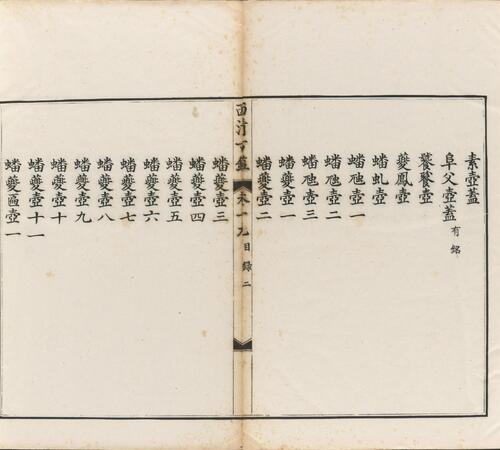 素壺蓋
阜父壺蓋有銘
饕餮壺
夔鳳壺
蟠虬壺
蟠虺壺一
蟠虺壺二
蟠虺壺三
蟠夔壺一
蟠夔壺二
西清古鑑 卷十九 目錄 二
蟠夔壺三
蟠夔壺四
蟠夔壺五
蟠夔壺六
蟠夔壺七
蟠夔壺八
蟠夔壺九
蟠夔壺十
蟠夔壺十一
蟠夔匾壺一